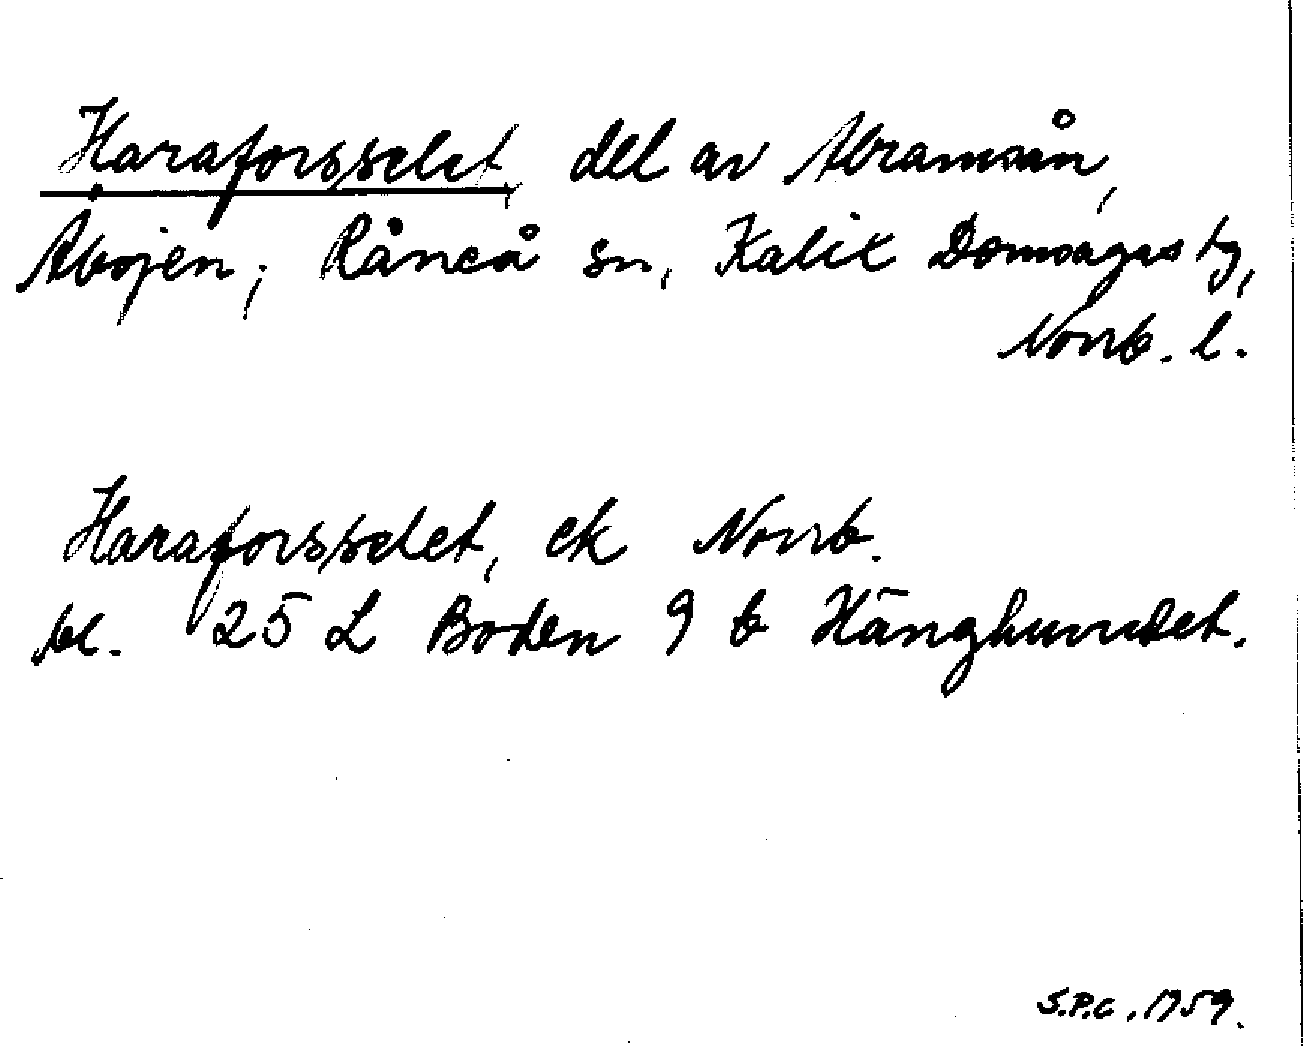 Haraforsselet, del av Abramsån,
Åbojen, Råneå sn, Kalix Domsagas tg,
Norrb. l.
Haraforsselet, ek Norrb.
bl. 25 L Boden 9 b Hänghundet.
S.P.C. 1959.